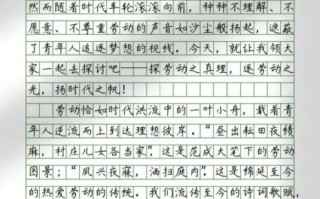 然而随着时代车轮滚滚向前，种种不理解、不
愿意、不尊重劳动的声音如沙尘般扬起，遮蔽
了青年人追逐梦想的视线。今天，就让我领大
家一起去探讨吧——探劳动之真理，逐劳动之
光，扬时代之帆！
劳动恰如时代洪流中的一叶小舟，载着青
年人逆流而上到达理想彼岸。“昼出耘田夜绩
麻，村庄儿女各当家”，这是范成大笔下的劳动
图景；“夙兴夜寐，洒扫庭内”，这是绵延至今
的热爱劳动的传统。我们流传至今的诗词歌赋，